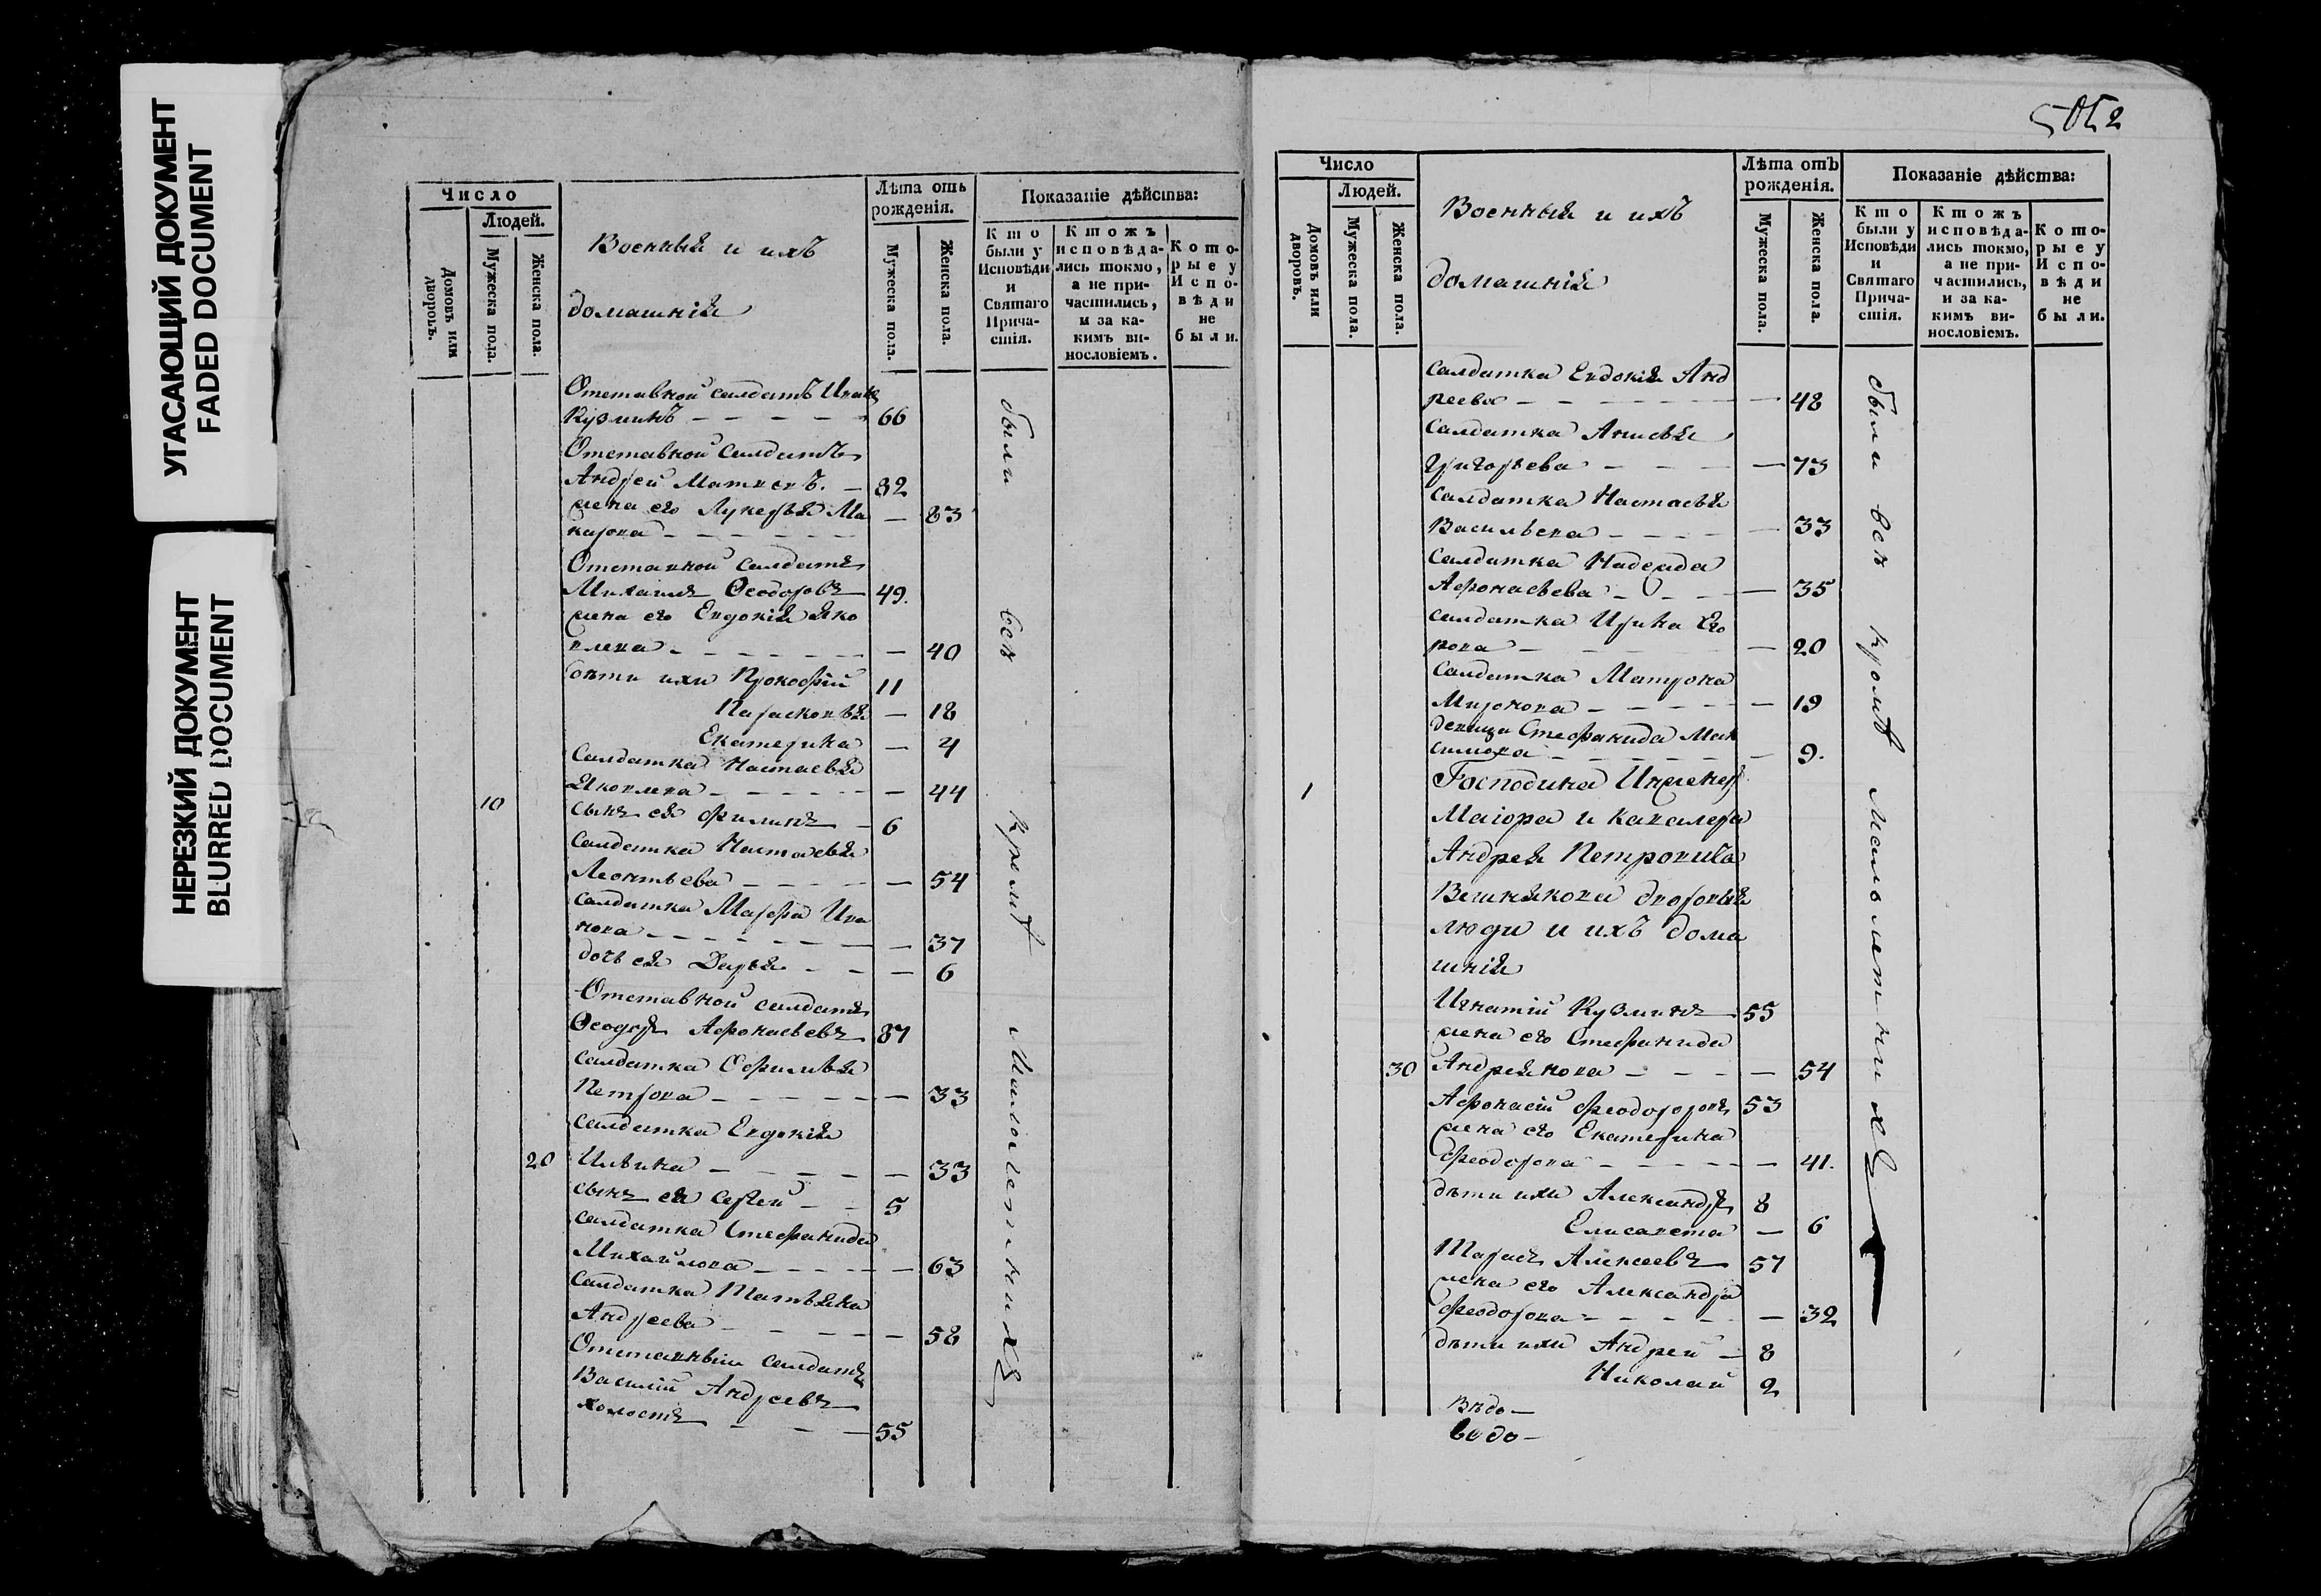 УГАСАЮЩИЙ ДОКУМЕНТ
FADED DOCUMENT
НЕРЕЗКИЙ ДОКУМЕНТ
BLURRED DOCUMENT
Число
Людей.
Домовъ или дворовъ.
Мужеска пола.
Женска пола.
Военныя и ихъ
домашнія
Лѣта отъ
рожденія.
Мужеска пола.
Женска пола.
Показаніе дѣйства:
Кто
были у
Исповѣди
и
Святаго
Прича-
стія.
Ктожъ
исповѣда-
лись токмо,
а не при-
частились,
и за ка-
кимъ ви-
нословіемъ.
Кото-
рые у
Испо-
вѣди
не
были.
Отставной салдатъ Иванъ
Кузминъ — 66
Отставной салдатъ
Андрей Матвеевъ. — 82
жена его Лукерья Ма — 83
карова
Отставной салдатъ
Михаилъ Ѳеодоровъ — 49.
жена его Евдокія Яко
влева — 40
дѣти ихъ Прокофій 11
Парасковья — 18
Екатерина — 4
Салдатка Настасья
Яковлева — 44
10 сынъ ея Филипъ — 6
Салдатка Настасья
Леонтьева — 54
Салдатка Марфа Ива
нова — 37
дочь ея Дарья — 6
Отставной салдатъ
Ѳеодоръ Афонасьевъ 87
Салдатка Офимья
Петрова — 33
Салдатка Евдокія
20 Ильина — 33
сынъ ея Сергей — 5
Салдатка Стефанида
Михайлова — 63
Салдатка Татьяна
Андреева — 58
Отставный салдатъ
Василій Андреевъ
холостъ — 55
были всѣ кромѣ Малолетнихъ
Число
Людей.
Домовъ или дворовъ.
Мужеска пола.
Женска пола.
Военныя и ихъ
домашнія
Лѣта отъ
рожденія.
Мужеска пола.
Женска пола.
Показаніе дѣйства:
Кто
были у
Исповѣди
и
Святаго
Прича-
стія.
Ктожъ
исповѣда-
лись токмо,
а не при-
частились,
и за ка-
кимъ ви-
нословіемъ.
Кото-
рые у
Испо-
вѣди
не
были.
салдатка Евдокія Анд
реева — 48
Салдатка Анисья
Григорьева — 73
салдатка Настасья
Васильева — 33
салдатка Надежда
Афонасьева — 35
салдатка Ирина Его
рова — 20
Салдатка Матрона
Миронова — 19
девица Стефанида Мак
симова — 9.
1 Господина Инженер
Маіора и кавалера
Андрея Петровича
Вешнякова дворовыя
люди и ихъ дома
шнія
Игнатій Кузминъ 55
жена его Стефанида
30 Андреянова — 54
Афонасій Феодоровъ 53
жена его Екатерина
Феодорова — 41.
дѣти ихъ Александръ 8
Елисавета — 6
Тарасъ Алексеевъ 57
жена его Александра
Феодорова — 32
дѣти ихъ Андрей — 8
Николай 2
были всѣ кромѣ Малолетнихъ